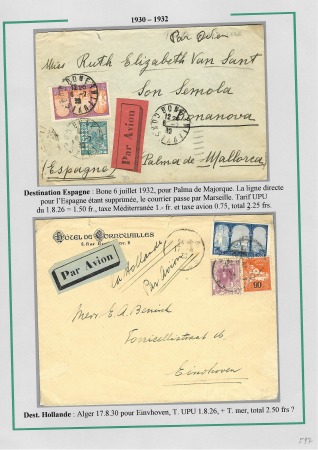 1930 – 1932
Par Avion
Miss Ruth Elizabeth Van Sant
Son Semola
Bonanova
(Espagne) Palma de Mallorca
Par Avion
Destination Espagne : Bone 6 juillet 1932, pour Palma de Majorque. La ligne directe
pour l'Espagne étant supprimée, le courrier passe par Marseille. Tarif UPU
du 1.8.26 = 1.50 fr., taxe Méditerranée 1.- fr. et taxe avion 0.75, total 2.25 frs.
HOTEL DE CORNOUAILLES
Par Avion
(La Hollande)
Par Avion
90
Mevr. E. A. Benink
Torricellistraat 16
Eindhoven
Dest. Hollande : Alger 17.8.30 pour Einvhoven, T. UPU 1.8.26, + T. mer, total 2.50 frs ?